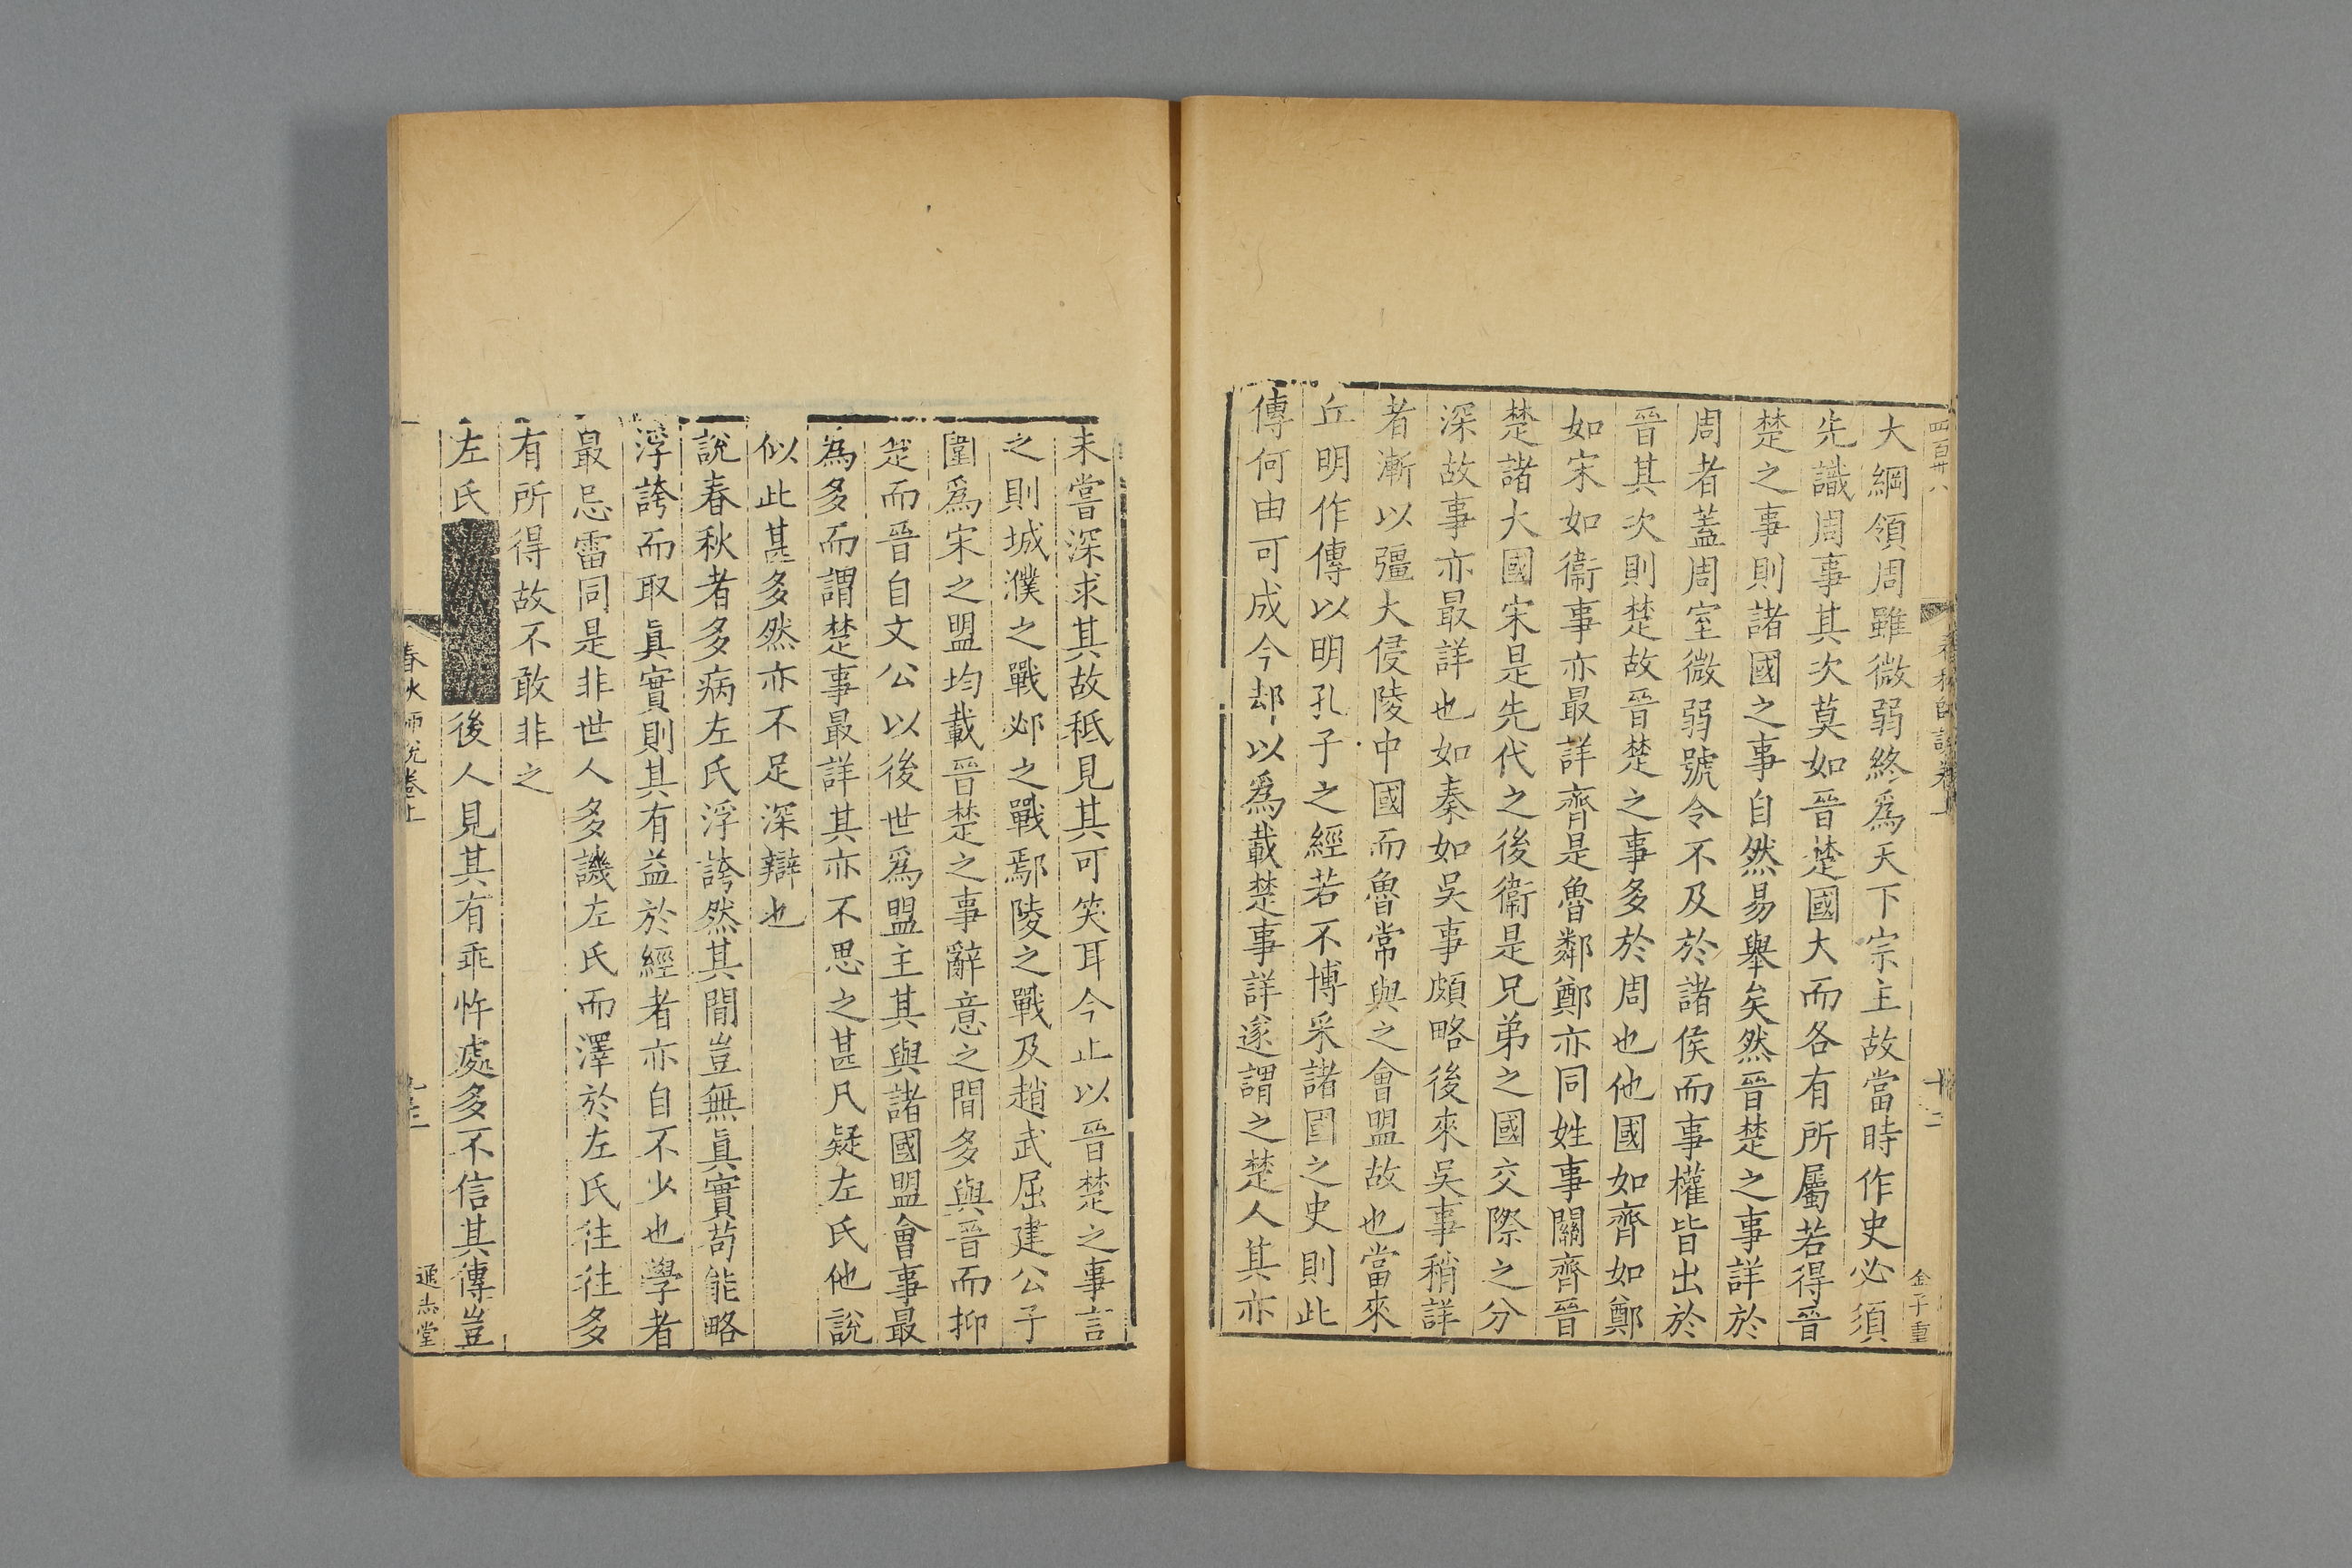 四百卅八
春秋師說卷上
十二
金子重
大綱領周雖微弱終爲天下宗主故當時作史必須
先識周事其次莫如晉楚國大而各有所屬若得晉
楚之事則諸國之事自然易舉矣然晉楚之事詳於
周者蓋周室微弱號令不及於諸侯而事權皆出於
晉其次則楚故晉楚之事多於周也他國如齊如鄭
如宋如衞事亦最詳齊是魯鄰鄭亦同姓事關齊晉
楚諸大國宋是先代之後衞是兄弟之國交際之分
深故事亦最詳也如秦如吳事頗略後來吳事稍詳
者漸以彊大侵陵中國而魯常與之會盟故也當來
丘明作傳以明孔子之經若不博采諸國之史則此
傳何由可成今却以爲載楚事詳遂謂之楚人其亦
未嘗深求其故秪見其可笑耳今止以晉楚之事言
之則城濮之戰邲之戰鄢陵之戰及趙武屈建公子
圍爲宋之盟均載晉楚之事辭意之間多與晉而抑
楚而晉自文公以後世爲盟主其與諸國盟會事最
爲多而謂楚事最詳其亦不思之甚凡疑左氏他說
似此甚多然亦不足深辯也
說春秋者多病左氏浮誇然其間豈無眞實苟能略
浮誇而取眞實則其有益於經者亦自不少也學者
最忌雷同是非世人多譏左氏而澤於左氏往往多
有所得故不敢非之
左氏
後人見其有乖忤處多不信其傳豈
春秋師說卷上
通志堂